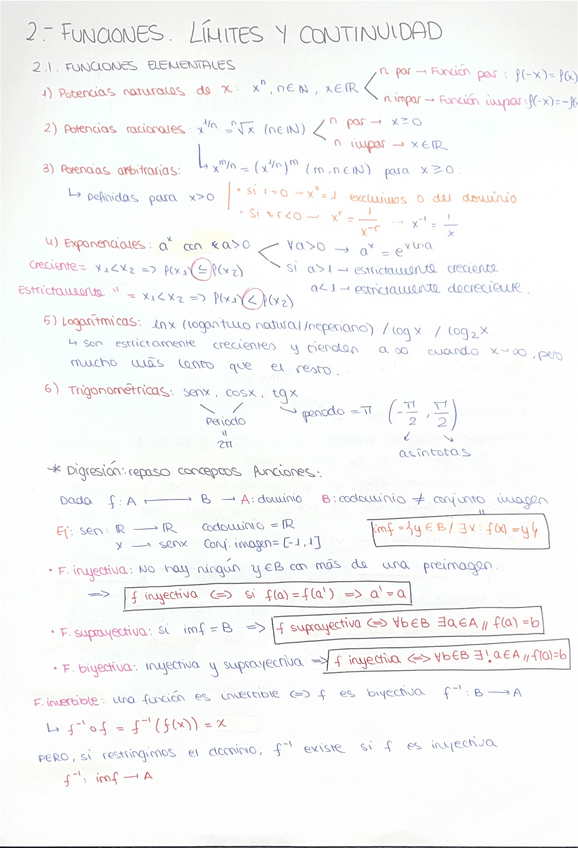 2.- FUNCIONES. LÍMITES Y CONTINUIDAD
2.1. FUNCIONES ELEMENTALES
1) Potencias naturales de x: xⁿ, n∈ℕ, x∈ℝ
n par → Función par: f(-x)=f(x)
n impar → Función impar: f(-x)=-f(x
2) Potencias racionales: x^{1/n} = ⁿ√x (n∈ℕ)
n par → x≥0
n impar → x∈ℝ
↳ x^{m/n} = (x^{1/n})^m (m,n∈ℕ) para x≥0.
3) Potencias arbitrarias:
↳ Definidas para x>0
• si r=0 → x⁰=1 excluimos 0 del dominio
• Si r<0 → x^r = 1/x^{-r} → x⁻¹ = 1/x
4) Exponenciales: aˣ con a>0
∀a>0 → aˣ = e^{x ln a}
si a>1 → estrictamente creciente
a<1 → estrictamente decreciente.
Creciente = x₁<x₂ => f(x₁) ≤ f(x₂)
Estrictamente " = x₁<x₂ => f(x₁) < f(x₂)
5) Logarítmicas: lnx (logaritmo natural/neperiano) / logx / log₂x
↳ son estrictamente crecientes y tienden a ∞ cuando x→∞, pero
mucho más lento que el resto.
6) Trigonométricas: senx, cosx, tgx
Periodo = 2π
periodo = π (-π/2, π/2)
asíntotas
* Digresión: repaso conceptos funciones:
Dada f: A ⟼ B → A: dominio B: codominio ≠ conjunto imagen
Ej: sen: ℝ → ℝ codominio = ℝ
x → senx conj. imagen = [-1,1]
imf = {y∈B / ∃x: f(x)=y}
• F. inyectiva: No hay ningún y∈B con más de una preimagen.
=> f inyectiva <=> si f(a)=f(a') => a'=a
• F. suprayectiva: si imf = B => f suprayectiva <=> ∀b∈B ∃a∈A // f(a)=b
• F. biyectiva: inyectiva y suprayectiva => f inyectiva <=> ∀b∈B ∃!a∈A // f(a)=b
F. invertible: una función es invertible <=> f es biyectiva f⁻¹: B → A
↳ f⁻¹∘f = f⁻¹(f(x)) = x
PERO, si restringimos el dominio, f⁻¹ existe si f es inyectiva
f⁻¹: imf → A